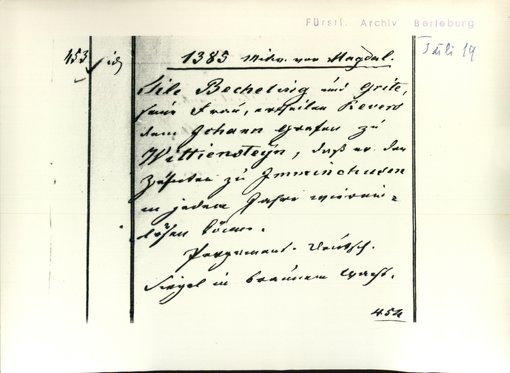 Fürstl. Archiv Berleburg
Juli 19
453
1385 Mitw. vor Magdal.
Sile Bechelnig und Grite,
seine Frau, ertheilen Revers
dem Johann Grafen zu
Wittiensteyn, daß er den
Zehnten zu Immenchusen
in jedem Jahre wieder-
lösen könne.
Pergament. Deutsch.
Siegel in braunem Wachs.
454